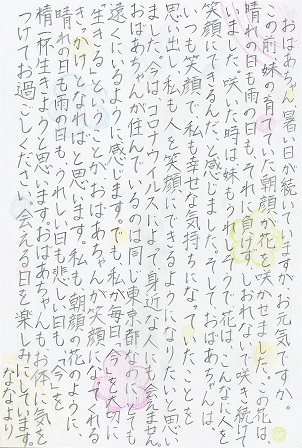 おばあちゃん、暑い日が続いていますがお元気ですか。
この前妹の育てていた朝顔が花を咲かせました。この花は、
晴れの日も雨の日も、それに負けずしおれないで咲き続けて
いました。咲いた時は妹もうれしそうで花は、こんなに人を
笑顔にできるんだ、と感じました。そしておばあちゃんは、
いつも笑顔で、私も幸せな気持ちになっていたことを
思い出し、私も人を笑顔にできるようになりたいと思い
ました。今は、コロナウイルスによって、身近な人にも会えません。
おばあちゃんが住んでいるのは同じ東京都なのに、とても
遠くにいるように感じます。でも、私が毎日、「今」を大切に
「生きる」ということが、おばあちゃんが笑顔になってくれる
きっかけとなればと思います。私も、朝顔の花のように、
晴れの日も雨の日も、うれしい日も悲しい日も、「今」を
精一杯生きようと思います。おばあちゃんもお体に気を
つけてお過ごしください。会える日を楽しみにしています。
ななより